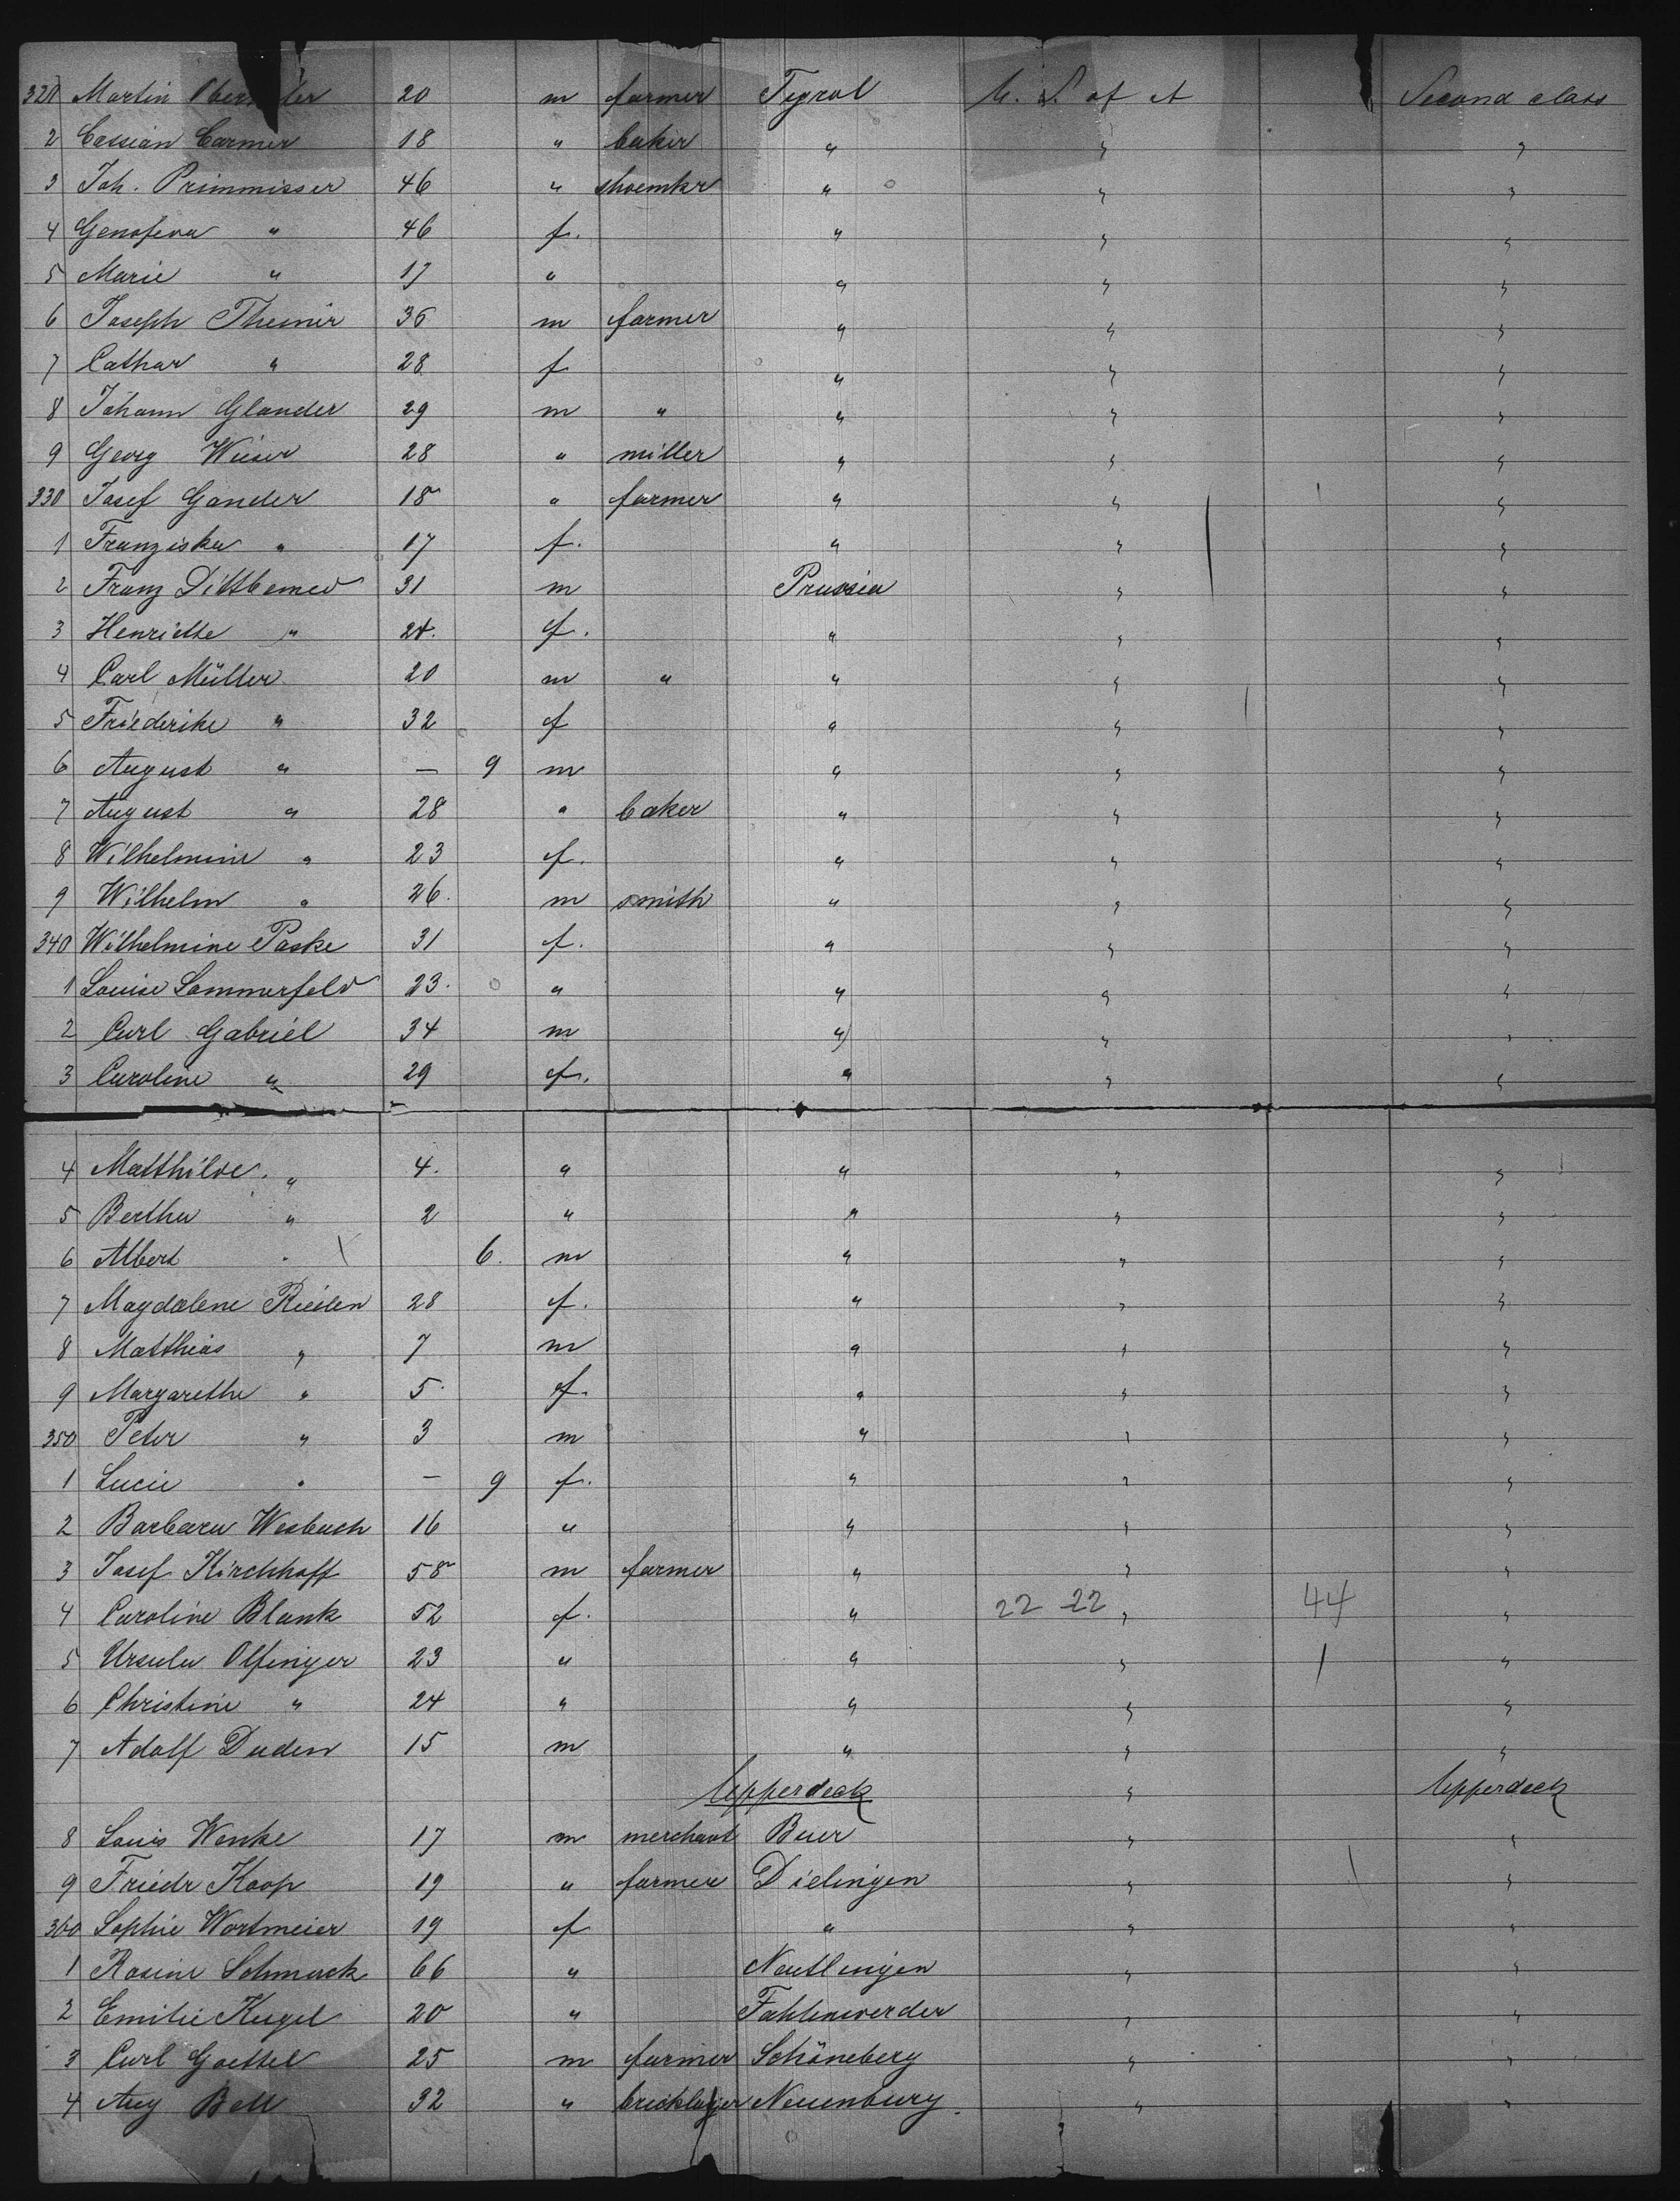 321 Martin 20 m farmer Tyrol U. S. of A Second class
2 Cassian Carmer 18 " baker " " "
3 Joh. Primmisser 46 " shoemkr " " "
4 Genofeva " 46 f. " " "
5 Marie " 17 " " " "
6 Joseph Theiner 36 m farmer " " "
7 Cathar " 28 f " " "
8 Johann Glander 29 m " " " "
9 Georg Wieser 28 " miller " " "
330 Josef Gander 18 " farmer " " "
1 Franziska " 17 f. " " "
2 Franz 31 m Prussia " "
3 Henriette " 24. f. " " "
4 Carl Müller 20 m " " " "
5 Friederike " 32 f " " "
6 August " — 9 m " " "
7 August " 28 " baker " " "
8 Wilhelmine " 23 f. " " "
9 Wilhelm " 26. m smith " " "
340 Wilhelmine Paske 31 f. " " "
1 Louise Sommerfeld 23. " " " "
2 Carl Gabriel 34 m " " "
3 Caroline " 29 f. " " "
4 Matthilde " 4. " " " "
5 Bertha " 2 " " " "
6 Albert " 6. m " " "
7 Magdalene 28 f. " " "
8 Matthias " 7 m " " "
9 Margarethe " 5. f. " " "
350 Peter " 3 m " " "
1 Lucie " — 9 f. " " "
2 Barbara Wesbuch 16 " " " "
3 Josef Kirchhoff 58 m farmer " " "
4 Caroline Blank 52 f. " 22 22 " 44 "
5 Ursula Olfinger 23 " " " "
6 Christine " 24 " " " "
7 Adolf Duden 15 m " " "
Upperdeck " Upperdeck
8 Louis Wenke 17 m merchant Buer " "
9 Friedr Koop 19 " farmer Dielingen " "
360 Sophie Wortmeier 19 f " " "
1 Rosine Schmuck 66 " Neutlingen " "
2 Emilie Kugel 20 " Fahlenwerder " "
3 Carl Goettel 25 m farmer Schöneberg " "
4 Aug Bell 32 " bricklayer Neuenburg. " "